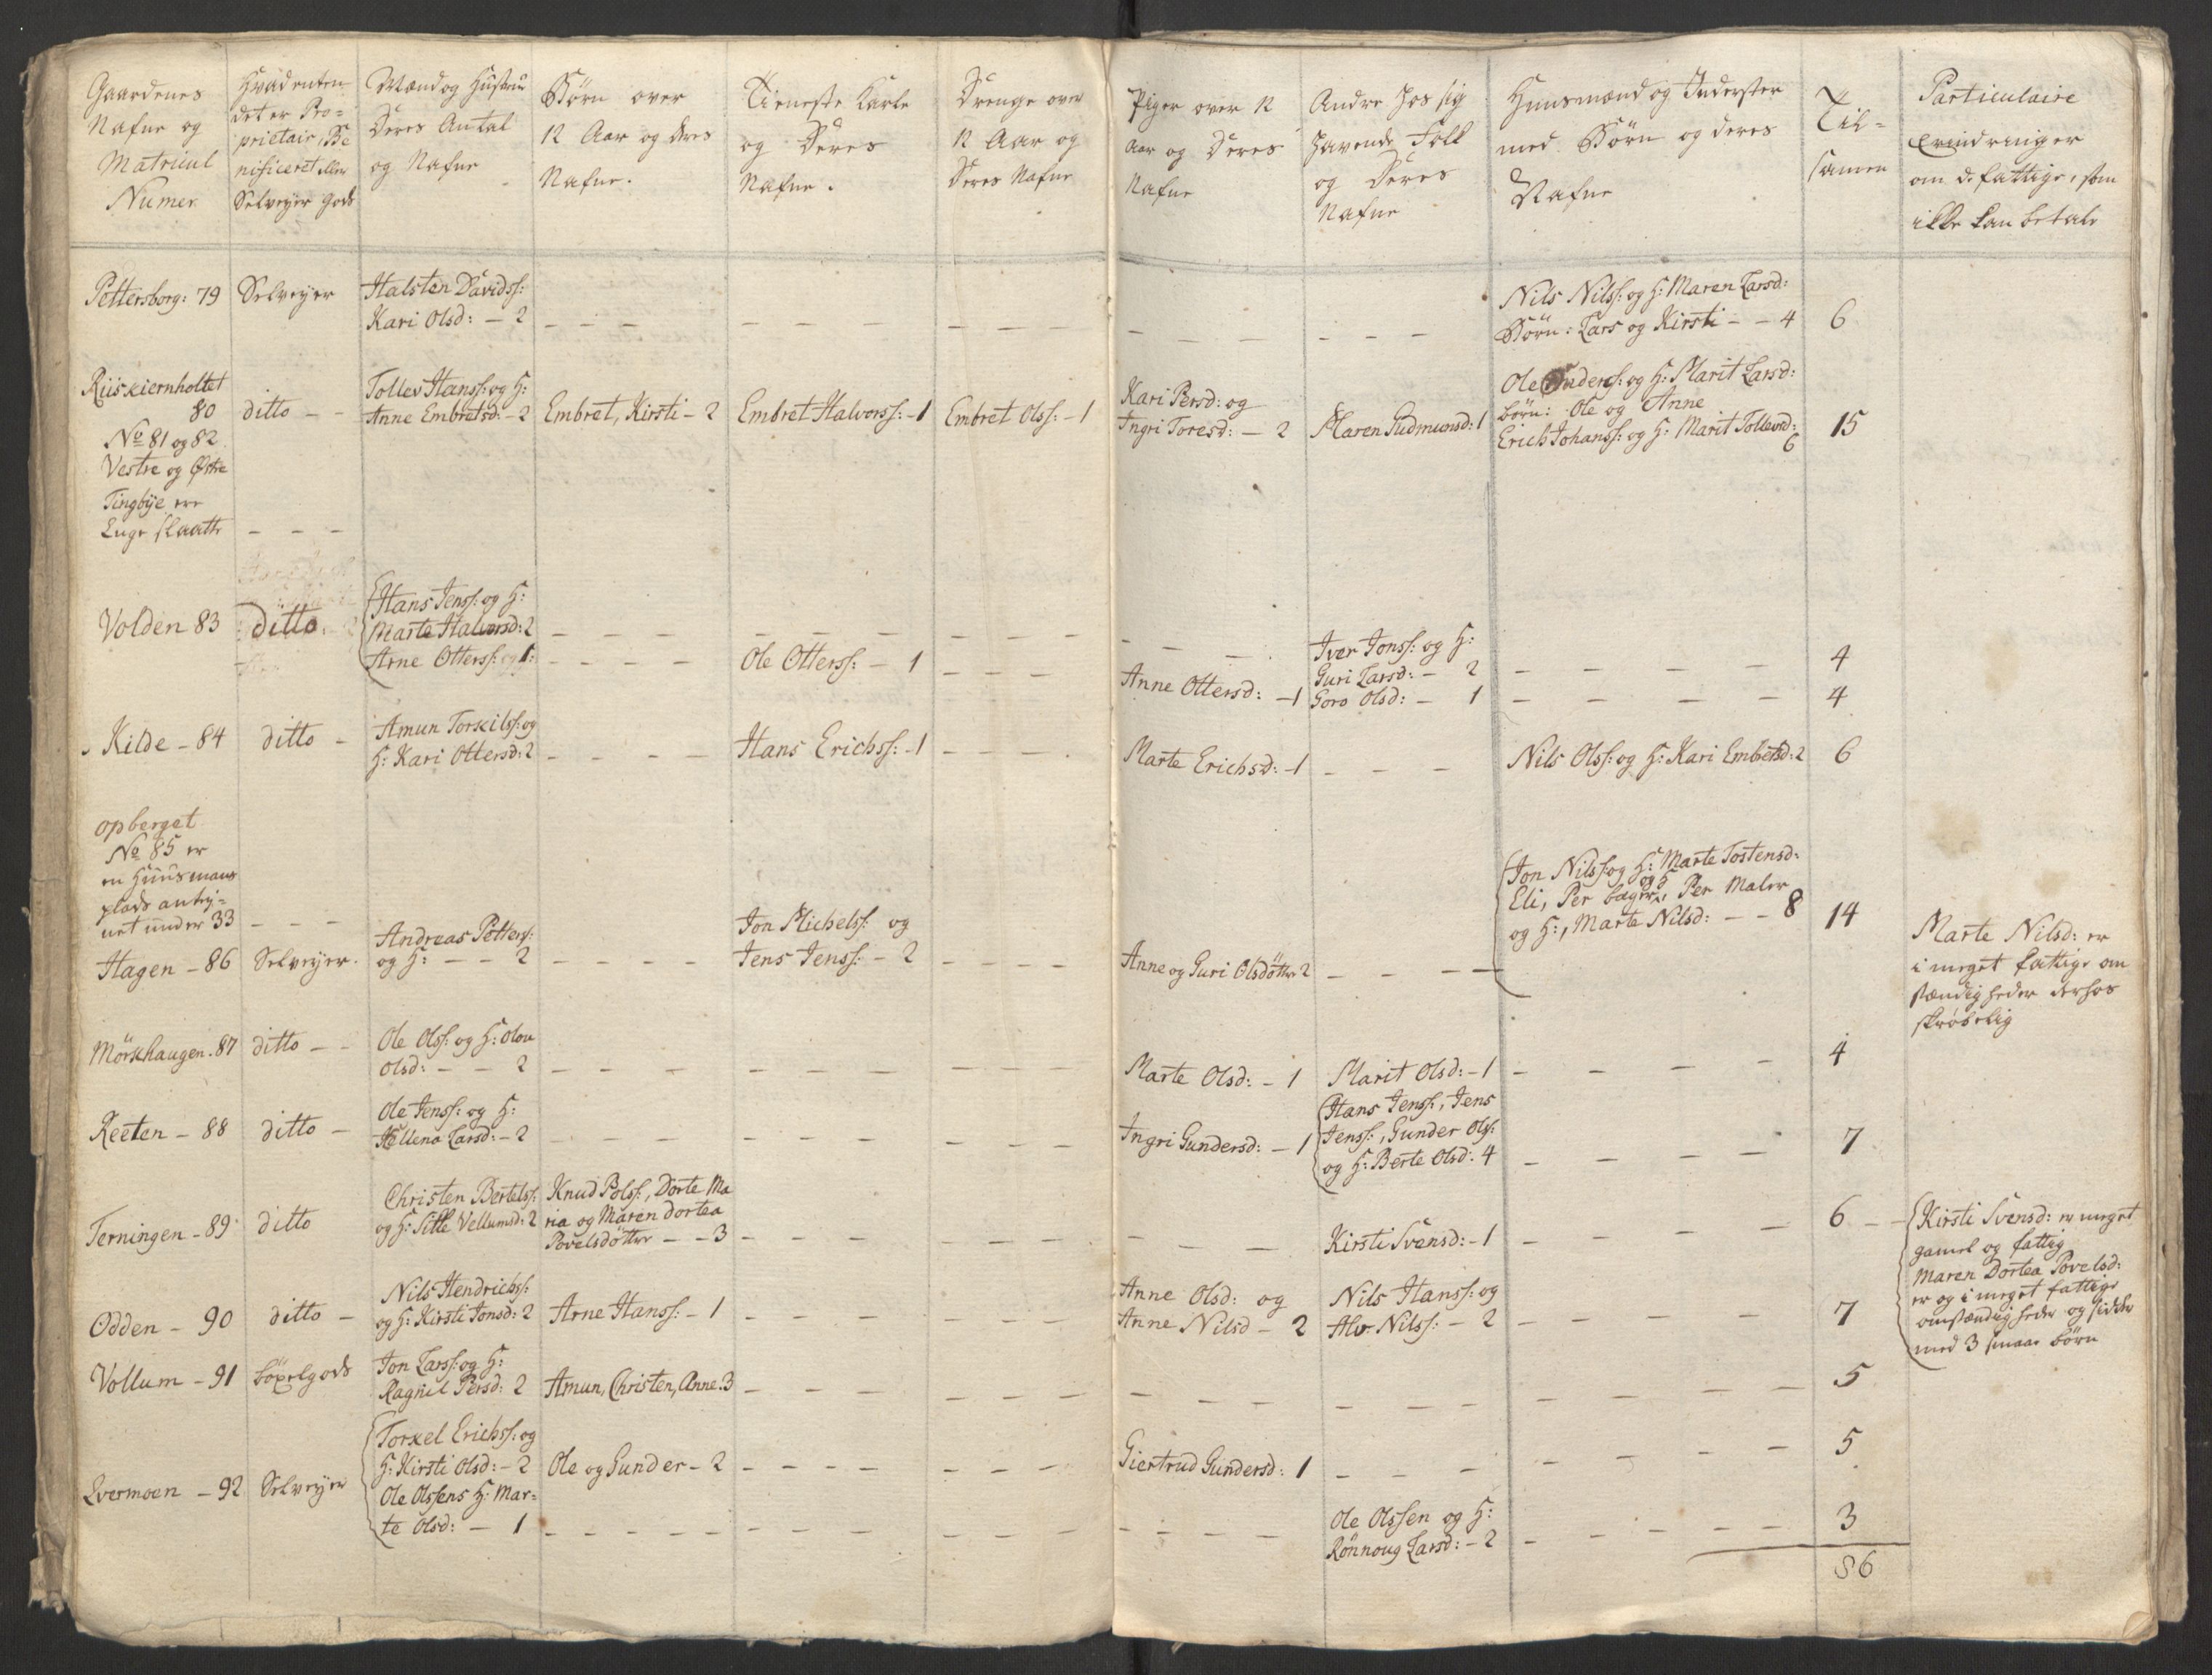 Gaardenes
Nafne og
Matricul
Numer
Hvad enten
det er Pro-
prietair, Be
nificeret eller
Selveyer Gods
Mænd og Hustruer
Deres Antal
og Nafne
Börn over
12 Aar og deres
Nafne.
Tieneste Karle
og Deres
Nafne.
Drenge over
12 Aar og
Deres Nafne
Piger over 12
Aar og Deres
Nafne
Andre hos sig
havende Folk
og Deres
Nafne
Huusmænd og Inderster
med Börn og deres
Nafne
Til-
samen
Particulaire
Erindringer
om de fattige, som
ikke kan betale
Pettersborg: 79 Selveyer
Halsten Davidss:
Kari Olsd: – 2 – – –
– – –
– – –
– – –
– – –
Nils Nilss: og H: Maren Larsd:
Börn: Lars og Kirsti – – 4 6
Riiskiernholtet
80 ditto – –
Tollev Hanss: og H:
Anne Embretsd: – 2 Embret, Kirsti – 2 Embret Halvorss: – 1 Embret Olss: – 1
Kari Persd: og
Ingri Toresd: – 2 Maren Gudmunsd: 1
Ole Anderss: og H: Marit Larsd:
börn: Ole og Anne
Erich Johanss: og H: Marit Tollevsd:
6 15
No 81 og 82
Vestre og Östre
Tingbye ere
Enge slaatte – – –
Volden 83 ditto
Hans Jenss: og H:
Marte Halvorsd: 2 – – – – – – – – – – – – –
Arne Otterss: 1: – – – – Ole Otterss: – 1 – – –
Iver Jonss: og H:
Guri Larsd: – 2 – – – – 4
Anne Ottersd: – 1 Goro Olsd: – 1 – – – – 4
Kilde – 84 ditto –
Amun Torkilss: og
H: Kari Ottersd: 2 – – – – Hans Erichss: – 1 – – –
Marte Erichsd: – 1 – – – Nils Olss: og H: Kari Embretsd: 2 6
opberget
No 85 er
en Huusmans
plads anteg-
net under 33 – – –
Hagen – 86 Selveyer.
Andreas Petterss:
og H: – – 2 – – – –
Jon Michelss: og
Jens Jenss: – 2 – – – –
Anne og Guri Olsdötter 2 – – – –
Jon Nilss: og H: Marte Tostensd:
og H
Eli, Per bager, Per Maler
og H:, Marte Nilsd: – – 8 14
Marte Nilsd: er
i meget fattige om
stændigheder derhos
skröbelig
Mörkhaugen. 87 ditto – –
Ole Olss: og H: Olou
Olsd: – – 2 – – – – – – – – –
Marte Olsd: – 1 Marit Olsd: – 1 – – – – 4
Reeten – 88 ditto –
Ole Jenss: og H:
Hellena Larsd: – 2 – – – – – – – – –
Ingri Gundersd: – 1
Hans Jenss:, Jens
Jenss:, Gunder Olss:
og H: Berte Olsd: 4 – – – – 7
Terningen – 89 ditto
Christen Bertelss:
og H: Sitle Vellumsd: 2
Knud Polss:, Dorte Ma
ria og Maren Dortea
Povelsdötter – – 3 – – – – – –
– – – Kirsti Svensd: – 1 – – – – 6 – –
Kirsti Svensd: er meget
gamel og fattig
Maren Dortea Povelsd:
er og i meget fattige
omstændigheder og sidder
med 3 smaae börn
Odden – 90 ditto –
Nils Hendrichss:
og H: Kirsti Jonsd: 2 Arne Hanss: – 1 – – – – – –
Anne Olsd: og
Anne Nilsd – 2
Nils Hanss: og
Alv Nilss: – 2 – – – – 7
Vollum – 91 böxelgods
Jon Larss: og H:
Ragnil Persd: 2 Amun, Christen, Anne. 3 – – – – – –
– – – – – – – – – – 5
Evermoen – 92 Selveyer
Torkel Erichss: og
H: Kirsti Olsd: – 2 Ole og Gunder – 2 – – – – – – –
Giertrud Gundersd: 1 – – – – – – – 5
Ole Olssens H: Mar-
te Olsd: – 1 – – – – – – – – – – – –
– – – –
Ole Olssen og H:
Rönnoug Larsd: – 2 – – – – – 3
86